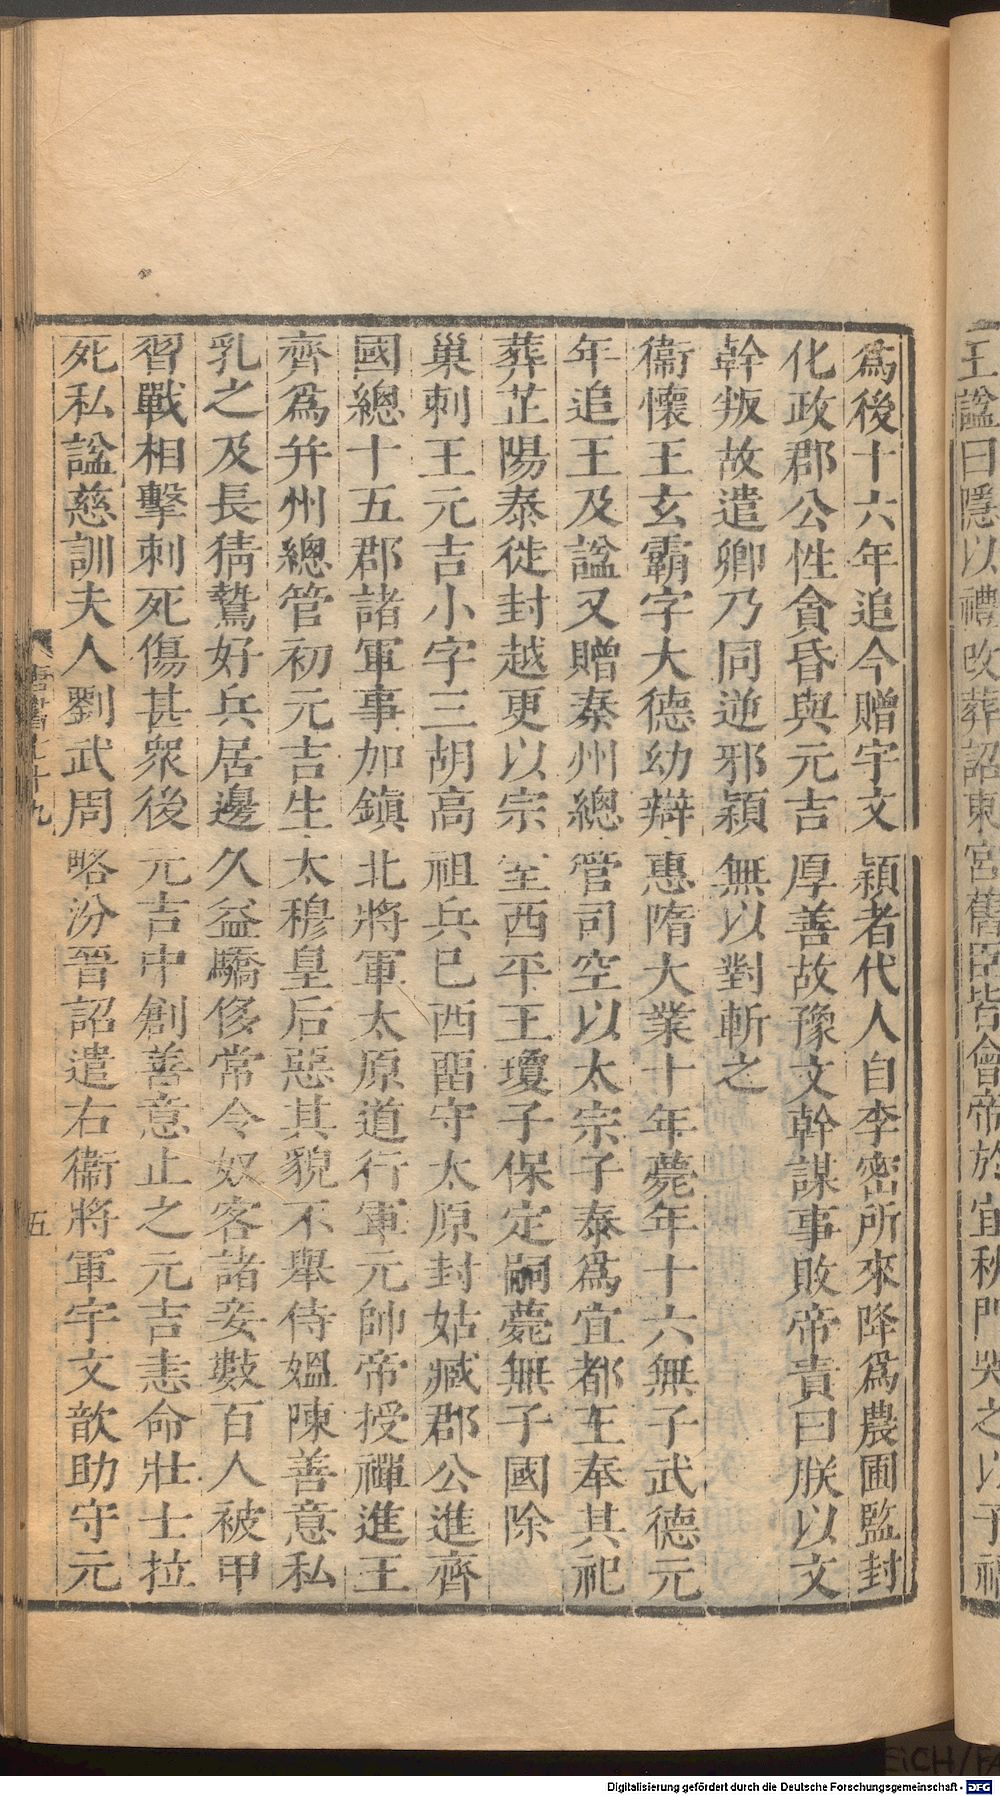 王諡曰隱以禮改葬詔東宮舊臣皆會帝於宜秋門哭之以子
爲後十六年追今贈宇文穎者代人自李密所來降爲農圃監封
化政郡公性貪昏與元吉厚善故豫文幹謀事敗帝責曰朕以文
幹叛故遣卿乃同逆邪穎無以對斬之
衞懷王玄霸字大德幼辯惠隋大業十年薨年十六無子武德元
年追王及諡又贈秦州總管司空以太宗子泰爲宜都王奉其祀
葬芷陽泰徙封越更以宗室西平王瓊子保定嗣薨無子國除
巢刺王元吉小字三胡高祖兵已西留守太原封姑臧郡公進齊
國總十五郡諸軍事加鎭北將軍太原道行軍元帥帝授禪進王
齊爲幷州總管初元吉生太穆皇后惡其貌不舉侍媼陳善意私
乳之及長猜鷙好兵居邊久益驕侈常令奴客諸妾數百人被甲
習戰相擊刺死傷甚衆後元吉中創善意止之元吉恚命壯士拉
死私諡慈訓夫人劉武周略汾晉詔遣右衞將軍宇文歆助守元
唐書七十九
五
Digitalisierung gefördert durch die Deutsche Forschungsgemeinschaft - DFG